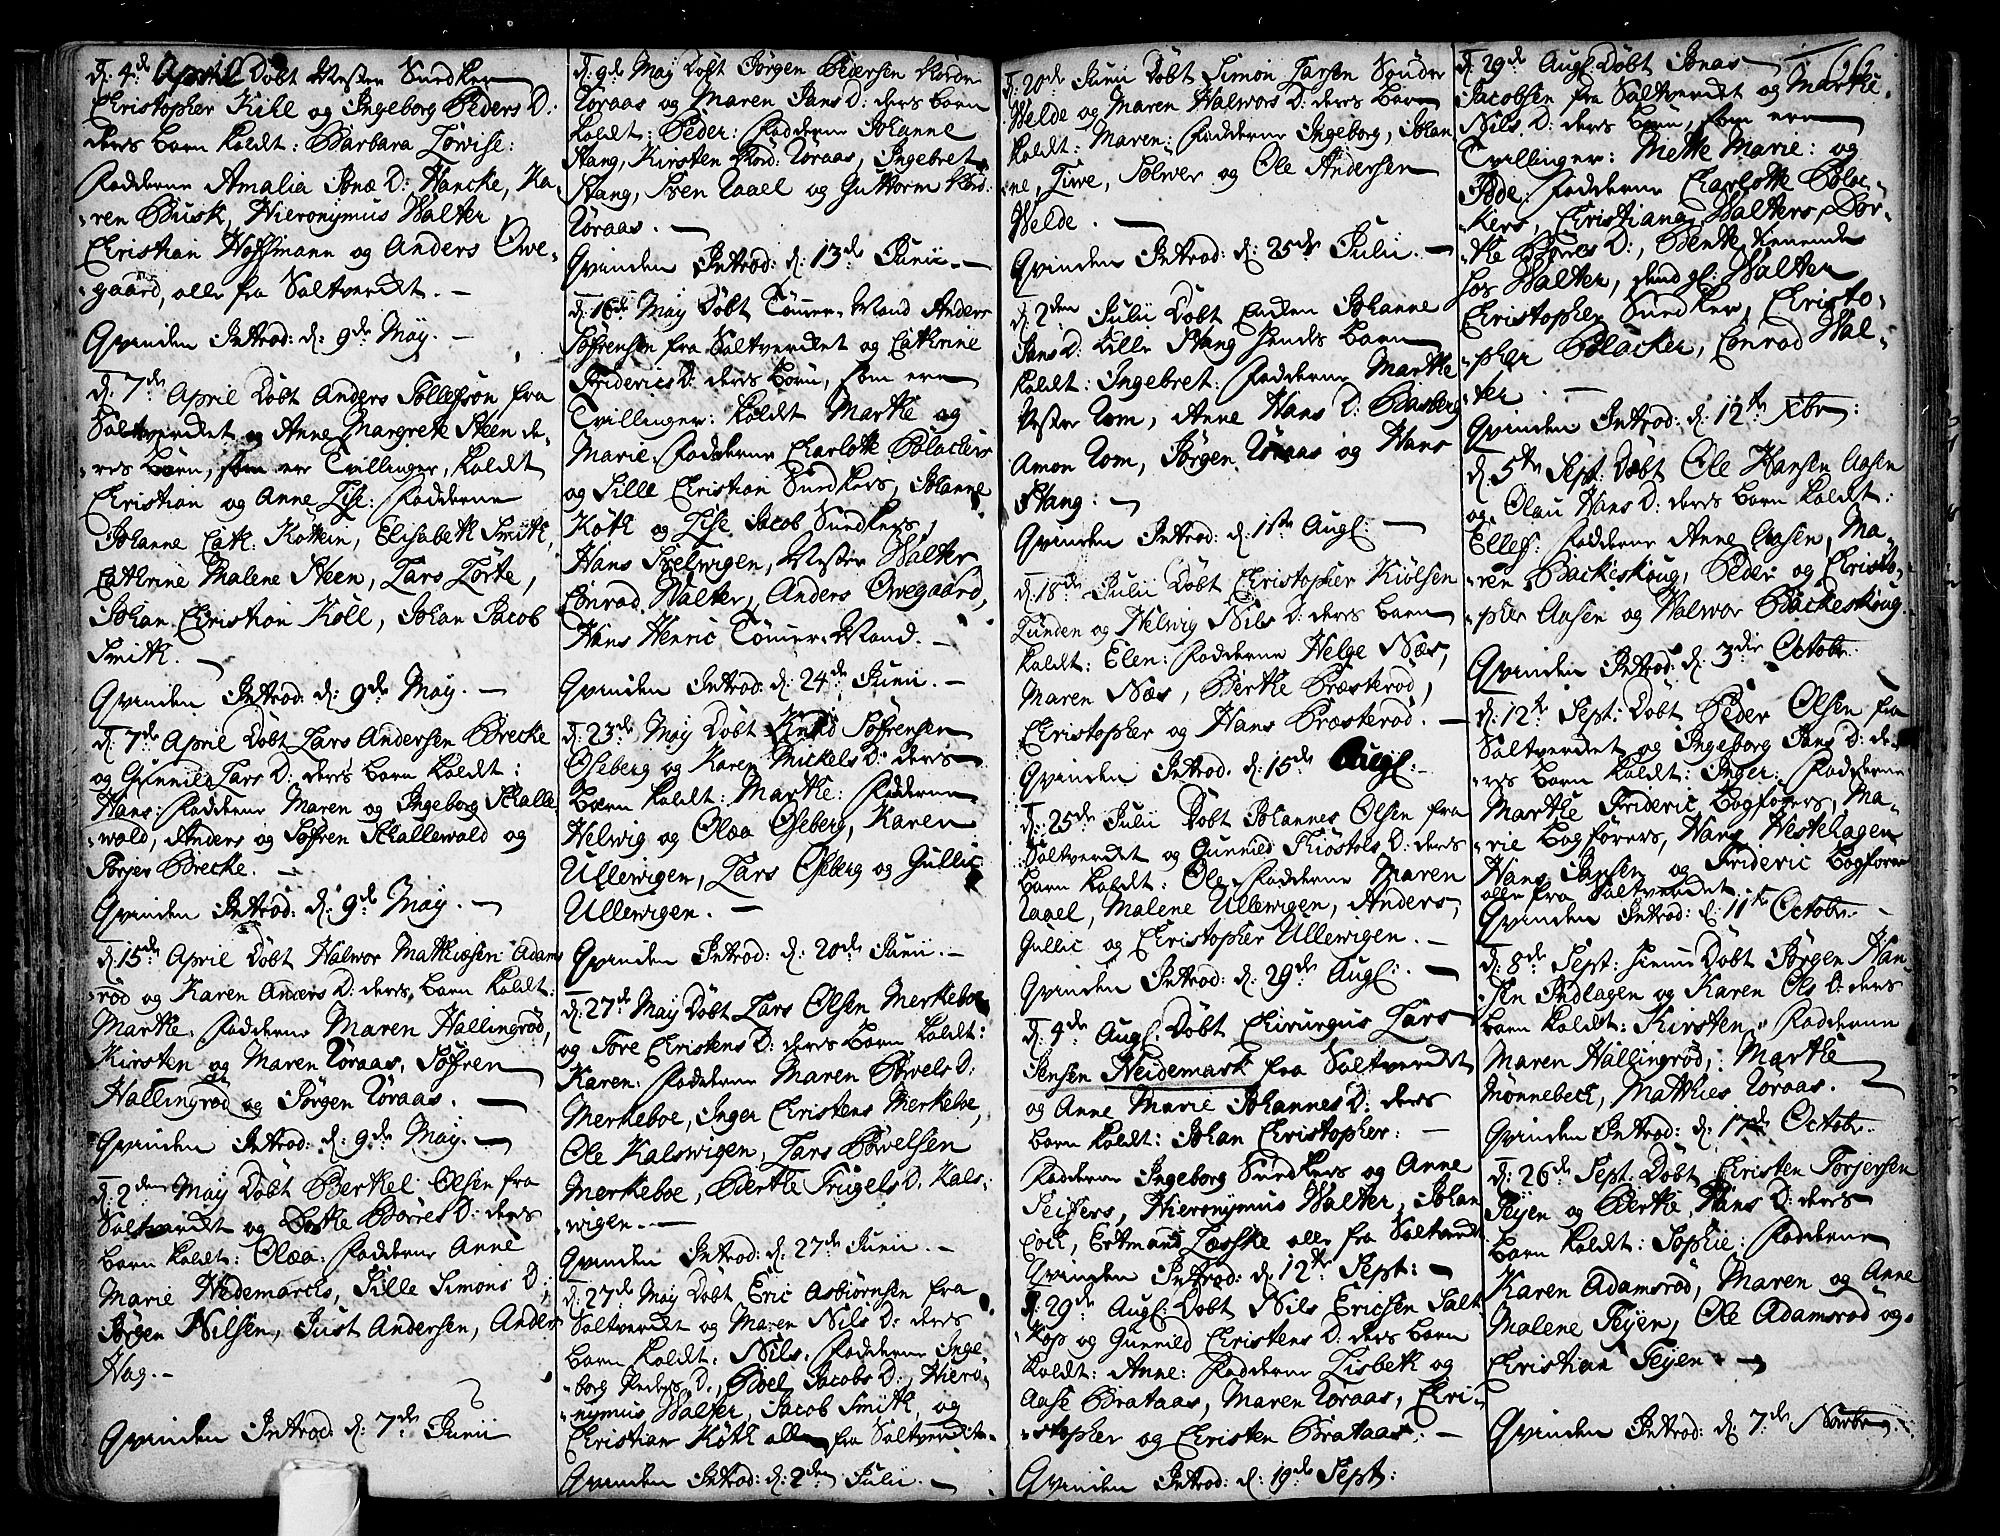 d. 4de April Döbt Mester Sundker
Christopher Kihl og Ingeborg Peders D:
ders barn kaldt: Barbara Lowise:
Fadderne Amalia Jonæ D: Hancke, Ka-
-ren Busk, Hieronymus Walter,
Christian Hoffmann og Anders Owe-
-gaard, alle fra Saltverdet. —
Qvinden Introd: d: 9de May. —
d. 7de April Döbt Anders Tollefsön fra
Saltverdet og Anne Margrete Steen de-
-res börn, som er Tvillinger, kaldt
Christian og Anne Lise: Fadderne
Johanne Cath: Köthein, Elisabeth Smith,
Cathrine Malene Steen, Lars Lörte,
Johan Christian Köll, Johan Jacob
Smith. —
Qvinden Introd: d: 9de May. —
d. 7de April Döbt Lars Andersen Brecke
og Gunnild Lars D: ders barn kaldt:
Hans: Fadderne Maren og Ingeborg Skalle
-wold, Anders og Söfren Skallewald og
Torjer Brecke. —
Qvinden Introd: d: 9de May. —
d. 15de April Döbt Halwor Mathiæsen Adams
-röd og Karen Anders D: ders barn kaldt:
Marthe: Fadderne Maren Hallingröd,
Kirsten og Maren Roraas, Söffren
Hallingröd og Jörgen Roraas. —
Qvinden Introd: d: 9de May. —
d. 2den May Döbt Berthel Olsen fra
Saltverdet og Dorthe Börres D: ders
barn kaldt: Olæa. Fadderne Anne
Marie Hedemarcks, Sille Simons D:,
Jörgen Nilsen, Just Andersen, Anders
Hag. —
Qvinden Introd: d: 7de Junii
d: 9de May Döbt Jörgen Pedersen Nordre
Roraas og Maren Jans D: ders barn
kaldt: Peder: Fadderne Johanne
Stang, Kirsten Nörd: Roraas, Ingebret
Stang, Sven Raael og Guttorm Nörd:
Roraas. —
Qvinden Introd: d: 13de Junii. —
d: 16de May Döbt Tömer-Mand Anders
Söfrensen fra Saltverdet og Cathrine
Friderics D: ders börn, som ere
Tvillinger: kaldt Marthe og
Marie. Fadderne Charlotte Blackers
og Sille Christian Sundkers, Johanne
Köth og Lise Jacob Sundkers,
Hans Helwigen, Mester Walter
Conrad Walter, Anders Owegaard,
Hans Henric Tömer-Mand. —
Qvinden Introd: d: 24de Junii. —
d: 23de May Döbt Knud Söfrensen
Oseberg og Karen Mickels D: ders
Barn kaldt: Marthe: Fadderne
Helwig og Olæa Oseberg, Karen
Ullewigen, Lars Oseberg og Gullic
Ullewigen. —
Qvinden Introd: d: 20de Junii. —
d: 27de May Döbt Lars Olsen Merkeboe
og Tore Christens D: ders barn kaldt:
Karen: Fadderne Maren Bövels D:
Merkeboe, Inger Christens Merkeboe,
Ole Kalswigen, Lars Bövelsen
Merkeboe, Berthe Trugels D: Kals-
-wigen. —
Qvinden Introd: d: 27de Junii. —
d: 27de May Döbt Eric Asbiörnsen fra
Saltverdet og Maren Nils D: ders
barn kaldt: Nils. Fadderne Inge-
-borg Peders D:, Boel Jacobs D:, Hiero-
-nymus Walter, Jacob Smith, og
Christian Köth alle fra Saltverdet.
Qvinden Introd: d: 2den Julii. —
d: 20de Junii Döbt Simon Larsen Sönder
Welde og Maren Halwors D: ders barn
kaldt: Maren: Fadderne Ingeborg, Johan
-ne, Siwe, Sölwer og Ole Andersen
Welde. —
Qvinden Introd: d: 25de Julii. —
d: 2den Julii Döbt Enken Johanne
Jans D: Lille Stang hendes barn
kaldt: Ingebret: Fadderne Marthe
Vestre Rom, Anne Hans D: Basberg
Amon Rom, Jörgen Roraas og Hans
Stang: —
Qvinden Introd: d: 1ste Augl: —
d. 18de Julii Döbt Christopher Kiölsen
Lunden og Helwig Nils D: ders barn
kaldt: Elen: Fadderne Helge Næs,
Maren Næs, Berthe Præsteröd,
Christopher og Hans Præsteröd. —
Qvinden Introd. d: 15de Augl: —
d: 25de Julii Döbt Johannes Olsen fra
Saltverdet og Gunnild Kiöstols D: ders
barn kaldt: Ole. Fadderne Maren
Raael, Malene Ullewigen, Anders,
Gullic og Christopher Ullewigen. —
Qvinden Introd: d: 29de Augl: —
d: 9de Augl: Döbt Chirurgus Lars
Jensen Heidemark fra Saltverdet
og Anne Marie Johannes D: ders
barn kaldt: Johan Christopher: —
Fadderne Ingeborg Sundkers og Anne
Seiffers, Hieronymus Walter, Johan
Cock, Ertmand Læsske alle fra Saltverdet
Qvinden Introd: d: 12te Sept: —
d: 29de Augl: Döbt Nils Ericsen Salt
-kop og Gunnild Christens D: ders barn
kaldt: Anne: Fadderne Lisbeth og
Aase Brataas, Maren Roraas, Chri-
-stopher og Christen Brataas. —
Qvinden Introd: d: 19de Sept:
d: 29de Augl: Döbt Jonas
Jacobsen fra Saltverdet og Marthe
Nils D: ders börn, som ere
Tvillinger: Mette Marie: og
Ide: Fadderne Charlotte Blac-
-kers, Christiana Walters, Dor-
-the Börres D:, Bente
hos Walter, den gl: Walter
Christopher Sundker, Christo-
-pher Blacker, Conrad Wal-
-ter. —
Qvinden Introd: d: 12te Xbr:
d: 5te Sept: Döbt Ole Hansen Aasen
og Olau Hans D: ders barn kaldt:
Ellef: Fadderne Anne Aasen, Ma-
-ren Backeskoug, Peder og Christo-
-pher Aasen og Halwor Backeskoug.
Qvinden Introd: d: 3die Octobr.
d: 12te Sept: Döbt Peder Olsen fra
Saltverdet og Ingeborg Jans D: de-
-res barn kaldt: Inger: Fadderne
Marthe Frideric Bogförers, Ma-
-rie Bogförers, Hans Hestehagen
Hans Jansen og Frideric Bogförer
alle fra Saltverdet.
Qvinden Introd: d: 11te Octobr. —
d: 8de Sept: hiemme Döbt Jörgen Han-
-sen Indlagen og Karen Ols D: ders
barn kaldt: Kirsten: Fadderne
Maren Hallingröd, Marthe
Mönnebeck, Mathies Roraas.
Qvinden Introd: d. 17de Octobr.
d: 26de Sept: Döbt Christen Torjersen
Teyen og Berthe Hans D: ders
barn kaldt: Sophie: Fadderne
Karen Adamsröd, Maren og Anne
Malene Teyen, Ole Adamsröd og
Christian Teyen. —
Qvinden Introd: d: 7de Novbr.